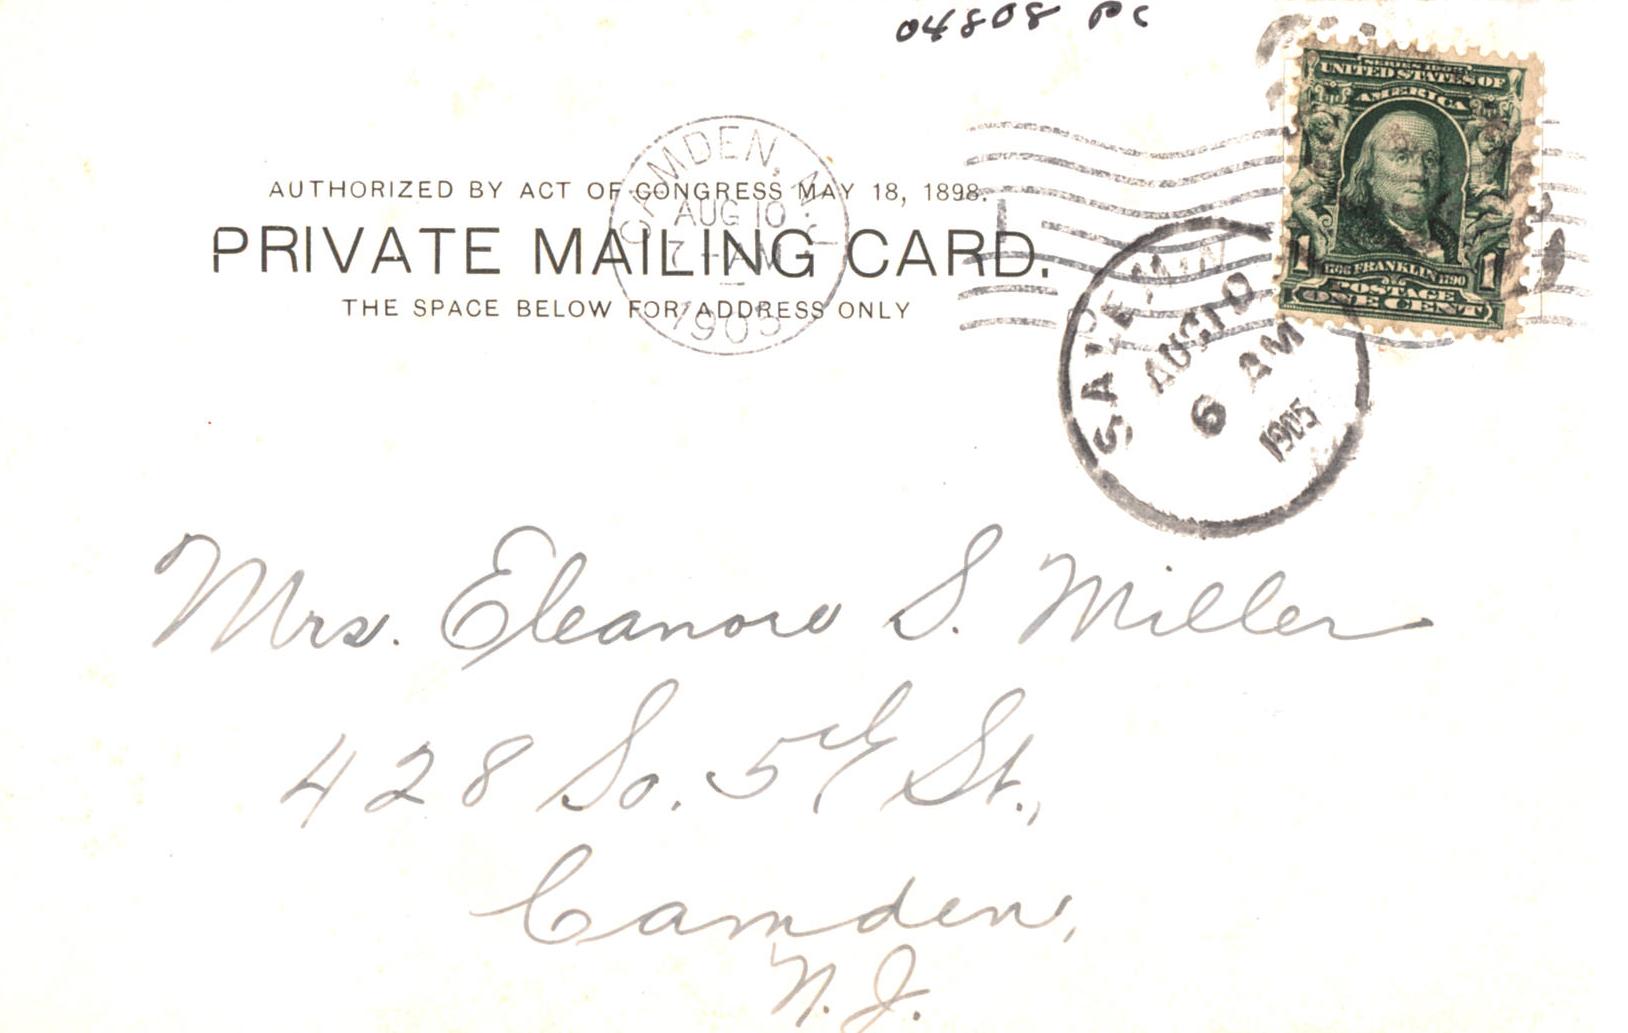 04808 pc
SERIES 1902
UNITED STATES OF
AMERICA
1 1706 FRANKLIN 1790 1
POSTAGE
ONE CENT
CAMDEN, N.J.
AUG 10
7 - AM
1905
AUTHORIZED BY ACT OF CONGRESS MAY 18, 1898.
PRIVATE MAILING CARD.
THE SPACE BELOW FOR ADDRESS ONLY
AUG 10
6 AM
1905
Mrs. Eleanore S. Miller
428 So. 5th St.,
Camden,
N.J.